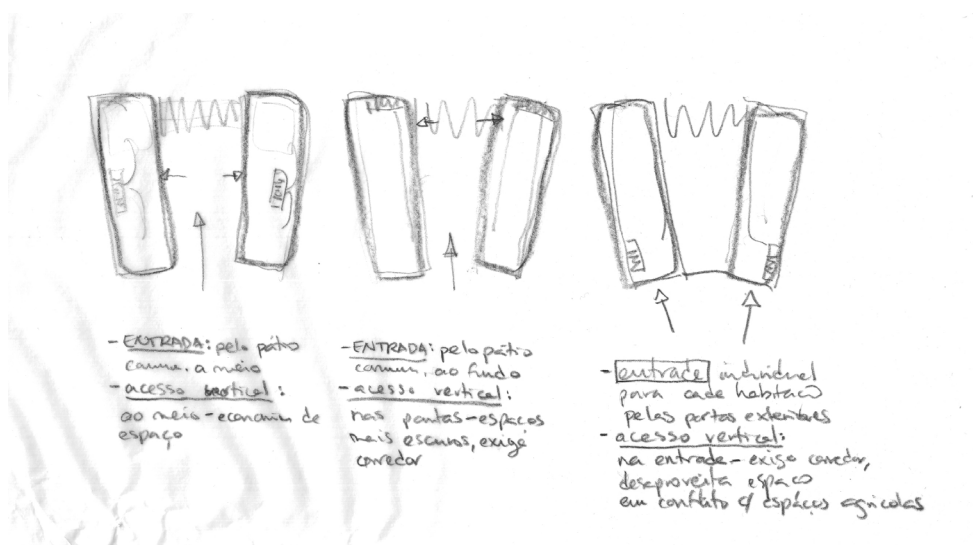 - ENTRADA: pelo pátio
comum, a meio
- acesso vertical:
ao meio - economia de
espaço
- ENTRADA: pelo pátio
comum, ao fundo
- acesso vertical:
nas pontas - espaços
mais escuros, exige
corredor
- entrada individual
para cada habitação
pelas portas exteriores
- acesso vertical:
na entrada - exige corredor,
desaproveita espaço
em conflito c/ espaços agrícolas